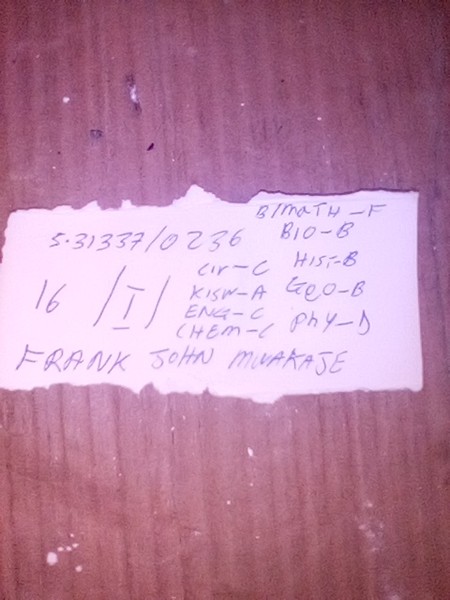 B/MATH-F
5.31337/0236 BIO-B
CIV-C HIST-B
16 /I/ KISW-A GEO-B
ENG-C
CHEM-C PHY-D
FRANK JOHN MWAKAJE